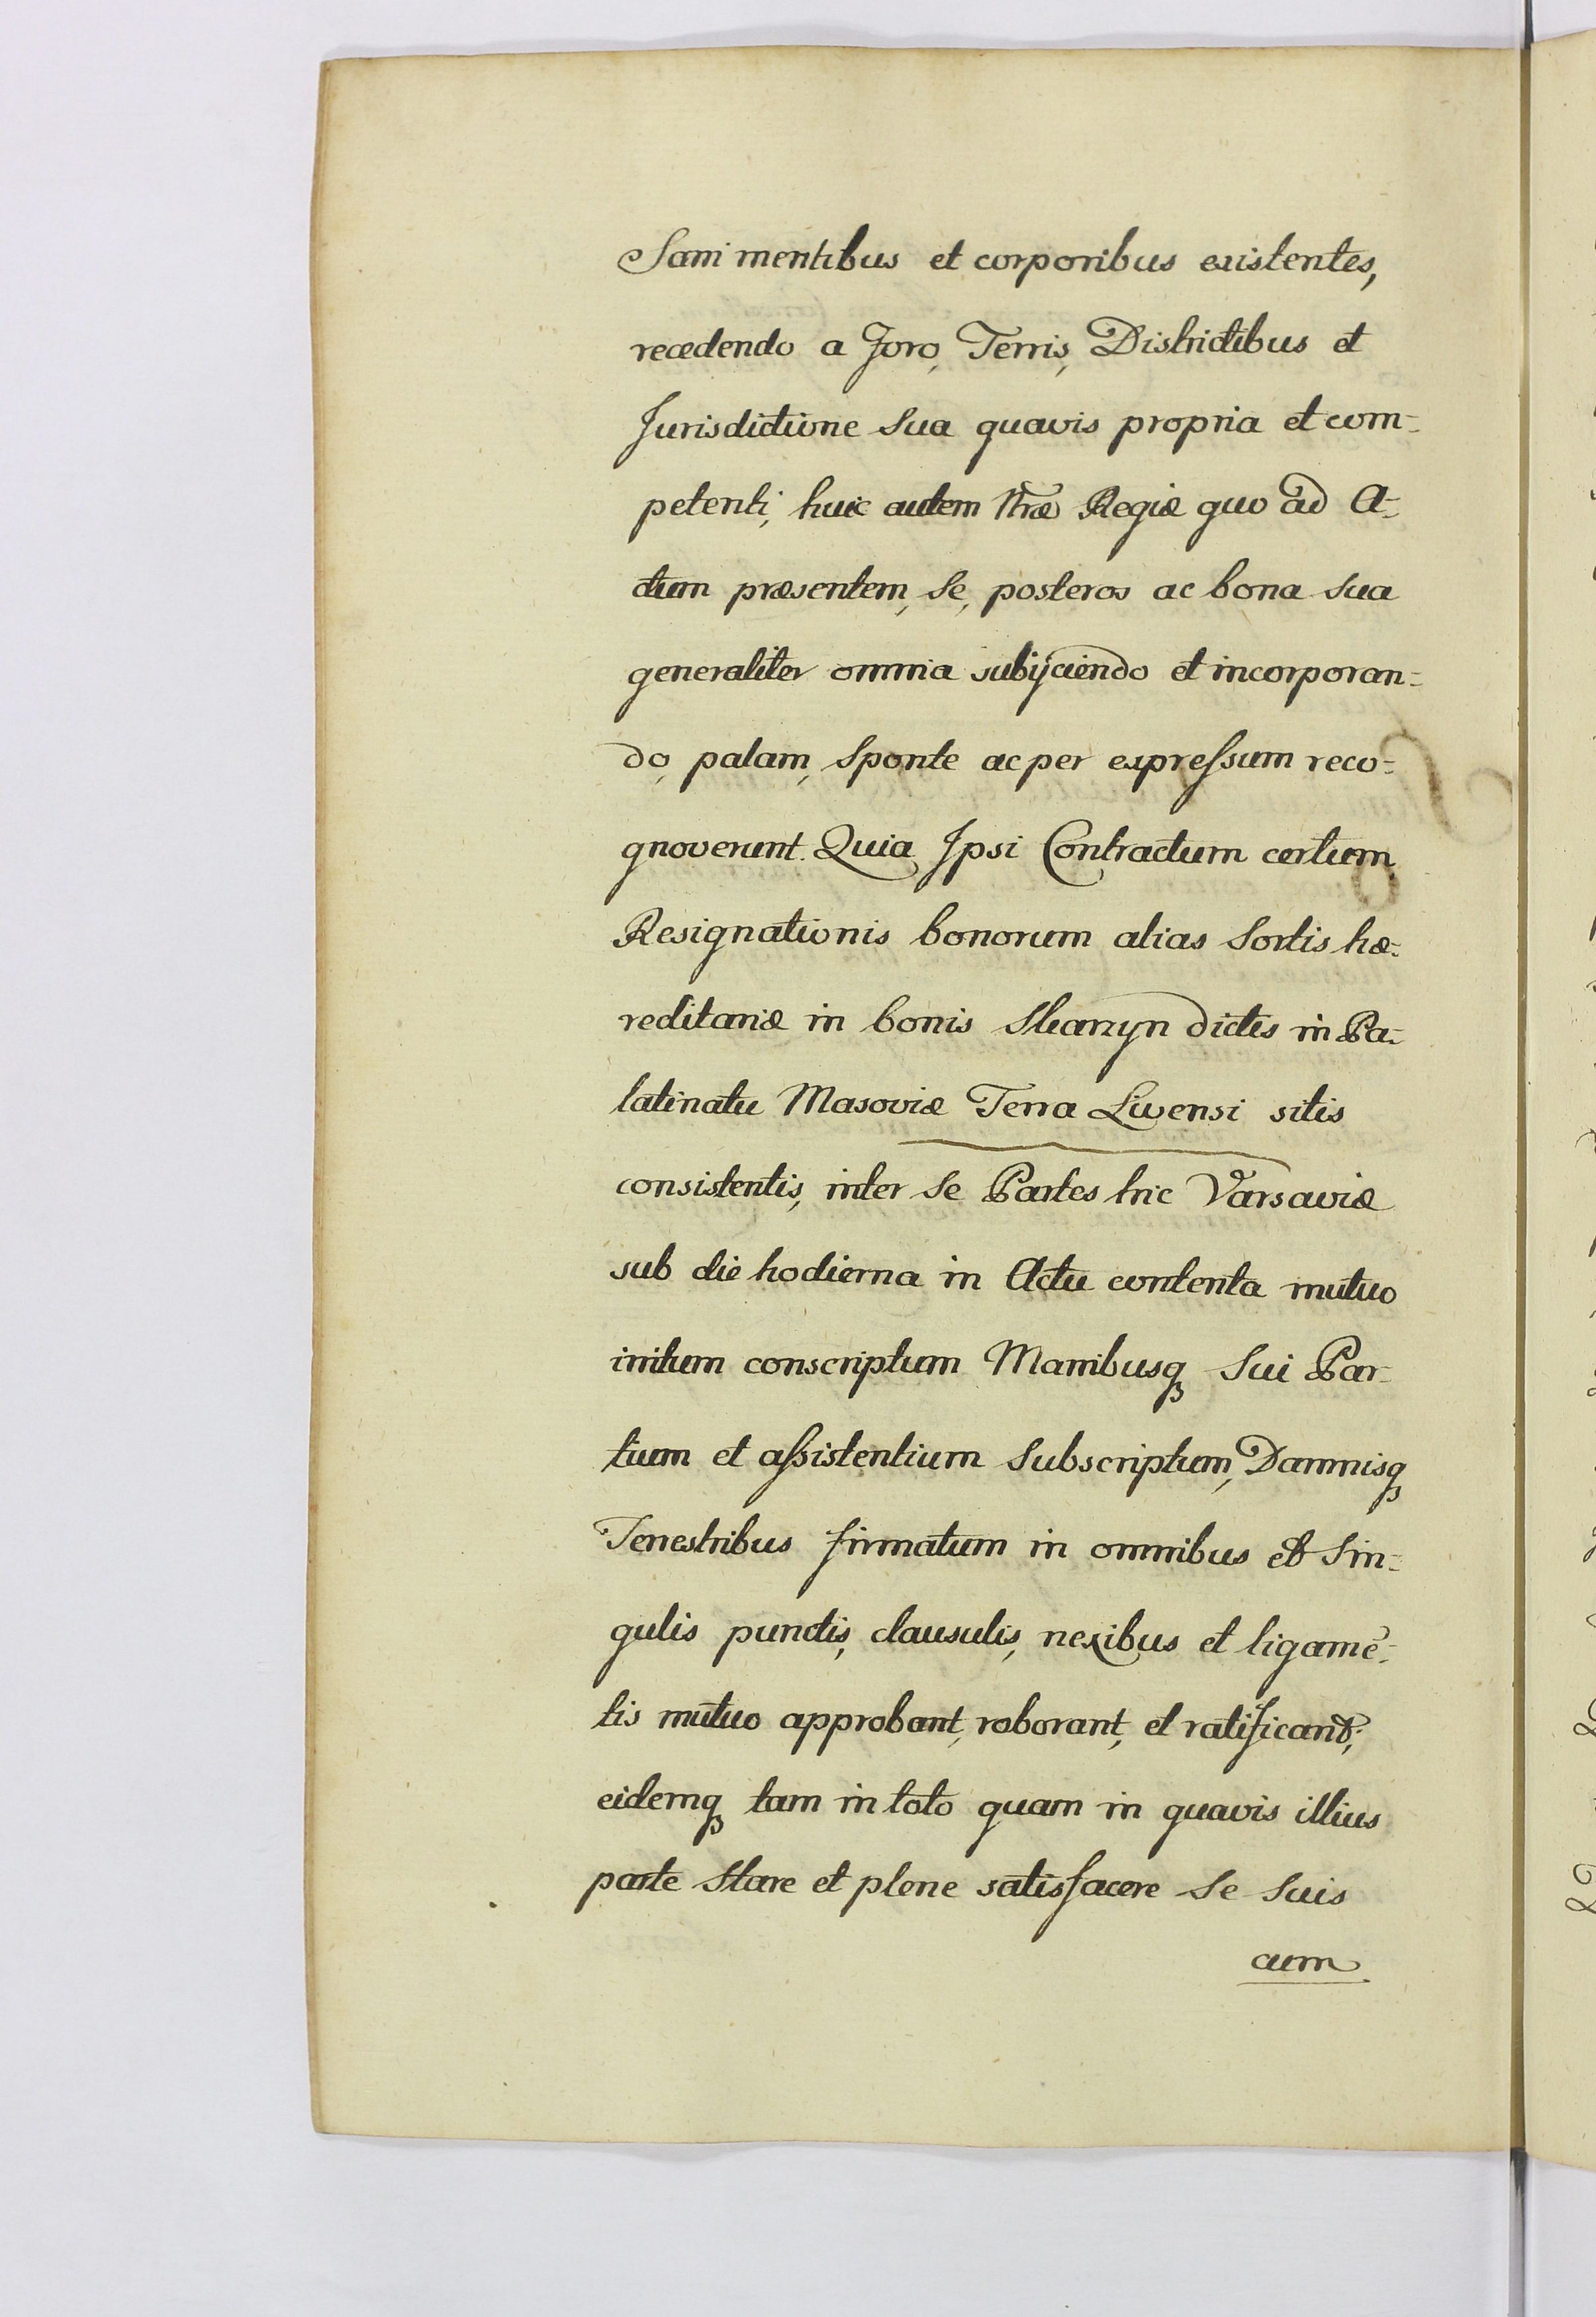 Sani mentibus et corporibus existentes,
recedendo a Foro, Terris, Districtibus et
Jurisdictione Sua quavis propria et com-
petenti, huic autem Nræ Regiæ quo ad A-
ctum præsentem, se, posteros ac bona sua
generaliter omnia subijciendo et incorporan-
do, palam, sponte ac per expressum reco-
gnoverunt. Quia Ipsi Contractum certum
Resignationis bonorum alias Sortis hæ-
reditariæ in bonis dictis in Pa-
latinatu Masoviæ Terra Livensi sitis
consistentis, inter se Partes hic Varsaviæ
sub die hodierna in Actu contenta mutuo
initum conscriptum Manibusq Sui Par-
tium et assistentium Subscriptum, Damnisq
Terrestribus firmatum in omnibus et Sin-
gulis punctis, clausulis, nexibus et ligamē-
tis mutuo approbant, roborant, et ratificant;
eidemq tam in toto quam in quavis illius
parte Stare et plene satisfacere Se Suis
cum